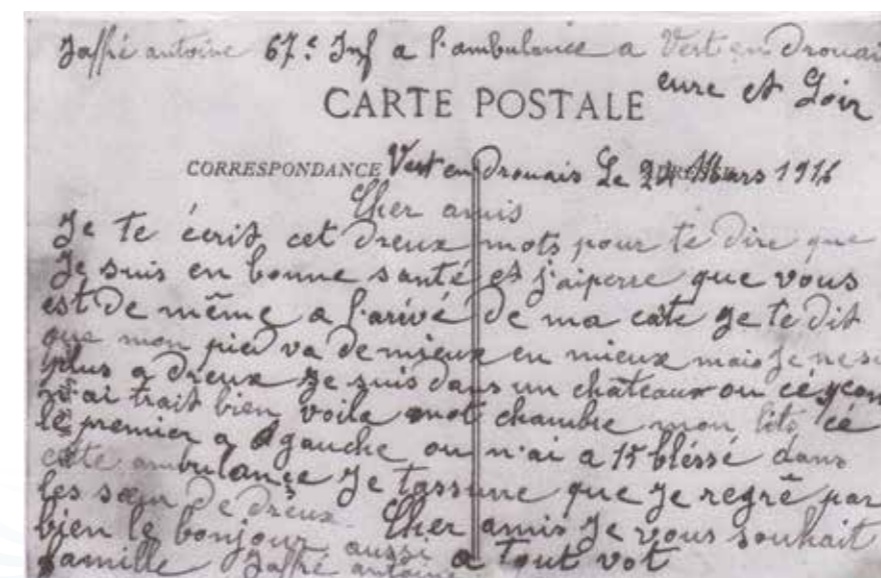 Jaffré antoine 67e Inf a l'ambulance a Vert en Drouai
eure et Loir
CARTE POSTALE
CORRESPONDANCE Vert en Drouais Le 24 Mars 1916
Cher amis
Je te écrit cet dreux mots pour te dire que
Je suis en bonne santé et j'aiperre que vous
est de même a l'arivé de ma cate Je te dit
que mon pied va de mieux en mieux mais Je ne
plus a dreux Je suis dans un chateaux ou cé
n'ai trait bien voila mot chambre mon lits cé
le premier a gauche ou n'ai a 15 bléssé dans
cete ambulançe Je tassure que Je regrè par
les sœur De dreux Cher amis Je vous souhait
bien le bonjour aussi a tout vot
famille Jaffré antoine